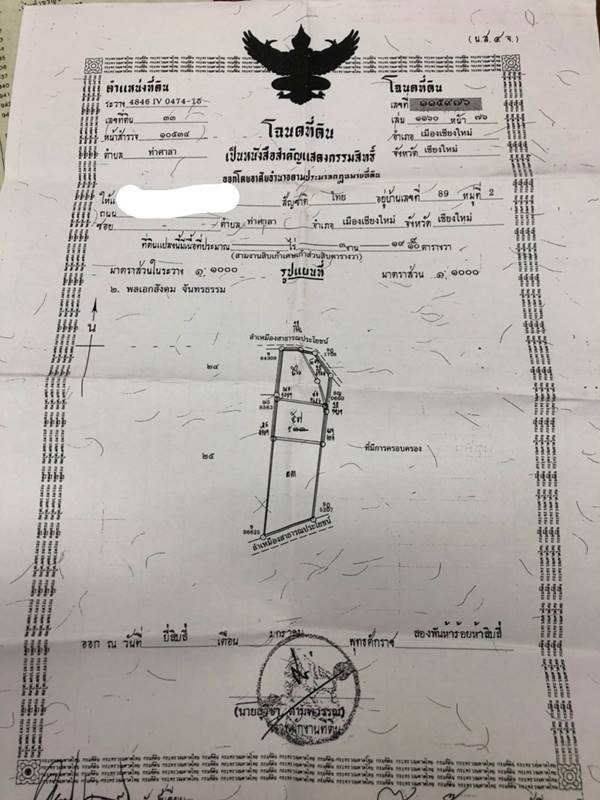 (น.ส. ๔ จ.)
ตำแหน่งที่ดิน
ระวาง 4846 IV 0474-15
เลขที่ดิน ๓๓
หน้าสำรวจ ๑๐๕๓๔
ตำบล ท่าศาลา
โฉนดที่ดิน
เลขที่ ๑๑๕๙๗๖
เล่ม ๑๑๖๐ หน้า ๗๖
อำเภอ เมืองเชียงใหม่
จังหวัด เชียงใหม่
โฉนดที่ดิน
เป็นหนังสือสำคัญแสดงกรรมสิทธิ์
ออกโดยอาศัยอำนาจตามประมวลกฎหมายที่ดิน
ให้แก่ สัญชาติ ไทย อยู่บ้านเลขที่ 89 หมู่ที่ 2
ถนน
ซอย ตำบล ท่าศาลา อำเภอ เมืองเชียงใหม่ จังหวัด เชียงใหม่
ที่ดินแปลงนี้มีเนื้อที่ประมาณ ไร่ ๓ งาน ๑๙ ตารางวา
(สามงานสิบเก้าเศษเก้าส่วนสิบตารางวา)
มาตราส่วนในระวาง ๑: ๑๐๐๐ รูปแผนที่ มาตราส่วน ๑: ๑๐๐๐
๒. พลเอกสังคม จันทรธรรม
น
ลำเหมืองสาธารณประโยชน์
๒๔
๒๕
ที่มีการครอบครอง
๓๓
ลำเหมืองสาธารณประโยชน์
ออก ณ วันที่ ยี่สิบสี่ เดือน มกราคม พุทธศักราช สองพันห้าร้อยห้าสิบสี่